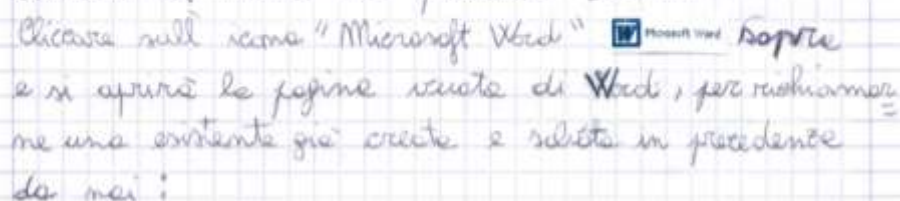 Cliccare sull icona "Microsoft Word" Microsoft Word sopra
e si aprirà la pagina vuota di Word, per richiamar=
ne una esistente già creata e salvata in precedenza
da noi :